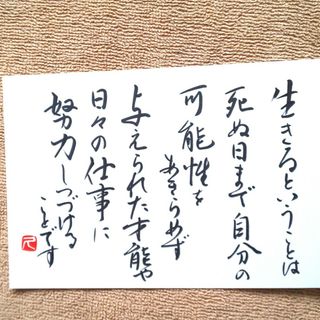 生きるということは
死ぬ日まで自分の
可能性を
あきらめず
与えられた才能や
日々の仕事に
努力しつづける
ことです